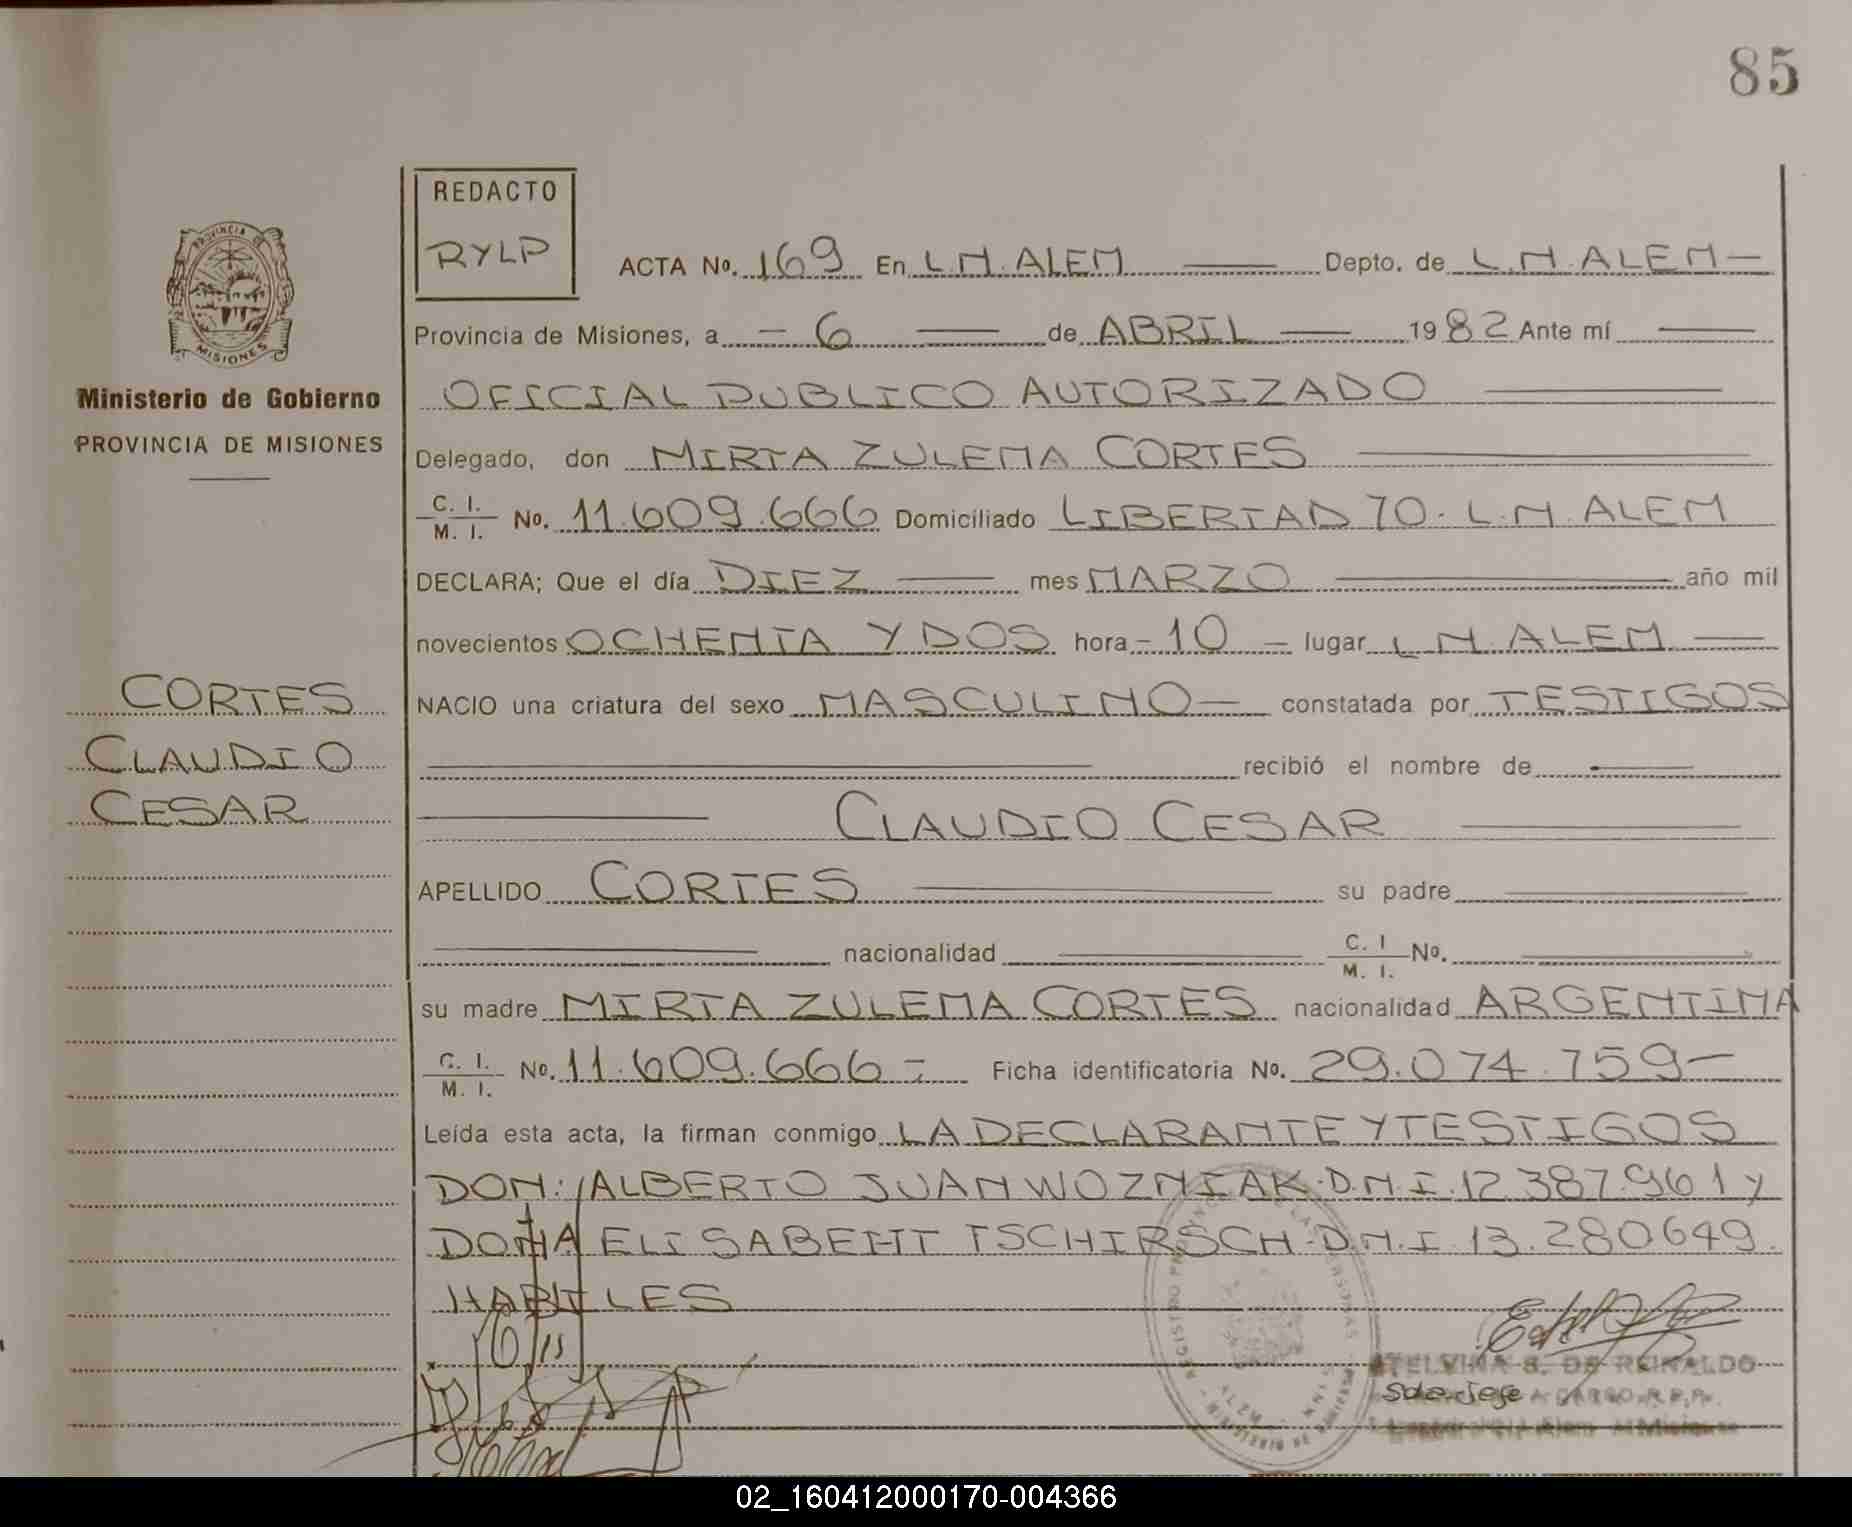 85
REDACTO
RYLP
PROVINCIA DE
MISIONES
Ministerio de Gobierno
PROVINCIA DE MISIONES
CORTES
CLAUDIO
CESAR
ACTA No. 169 En L.N.ALEM Depto. de L.N.ALEM-
Provincia de Misiones, a - 6 de ABRIL 1982 Ante mí
OFICIAL PUBLICO AUTORIZADO
Delegado, don MIRTA ZULEMA CORTES
C. I. M. I. No. 11.609.666 Domiciliado LIBERTAD 70. L.N.ALEM
DECLARA; Que el día DIEZ mes MARZO año mil
novecientos OCHENTA Y DOS hora -10- lugar L N. ALEM
NACIO una criatura del sexo MASCULINO constatada por TESTIGOS
recibió el nombre de
CLAUDIO CESAR
APELLIDO CORTES su padre
nacionalidad C. I M. I. No.
su madre MIRTA ZULEMA CORTES nacionalidad ARGENTINA
C. I. M. I. No. 11.609.666- Ficha identificatoria No. 29.074.759-
Leída esta acta, la firman conmigo LA DECLARANTE Y TESTIGOS
DON: ALBERTO JUAN WOZNIAK.D.N.I.12.387.961 y
DOÑA ELISABEHT TSCHIRSCH.D.N.I 13.280649.
HABILES
ETELVINA S. DE REINALDO
A CARGO R.P.P.
02_160412000170-004366